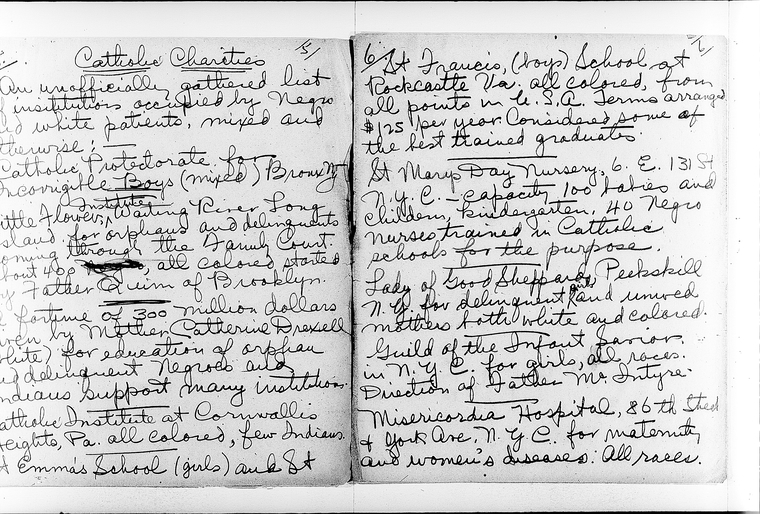 Catholic Charities
An unofficially gathered list
of institutions occupied by Negro
and white patients, mixed and
otherwise:—
Catholic Protectorate for
Incorrigible Boys (mixed) Bronx NY
Little Flower Institute, Wading River Long
Island for orphans and delinquents
coming through the Family Court.
about 400, all colored started
by Father Quinn of Brooklyn.
A fortune of 300 million dollars
given by Mother Catherine Drexell
(white) for education of orphan
and delinquent Negroes and
Indians support many institutions.
Catholic Institute at Cornwallis
Heights, Pa. all colored, few Indians.
St Emma's School (girls) and St
6 St Francis, (boys) School, at
Rockcastle Va. all colored, from
all points in U.S.A. Terms arranged
$125 per year. Considered some of
the best trained graduates
St Marys Day Nursery, 6. E. 131 St
N.Y.C. — capacity 100 babies and
children, kindergarten, 40 Negro
nurses trained in Catholic
schools for the purpose.
Lady of Good Sheppard, Peekskill
N.Y. for delinquent girls and unwed
mothers both white and colored.
Guild of the Infant Savior
in N.Y.C. for girls, all races.
Direction of Father McIntyre.
Misericordia Hospital, 86th Street
& York Ave. N.Y.C. for maternity
and women's diseases. All races.